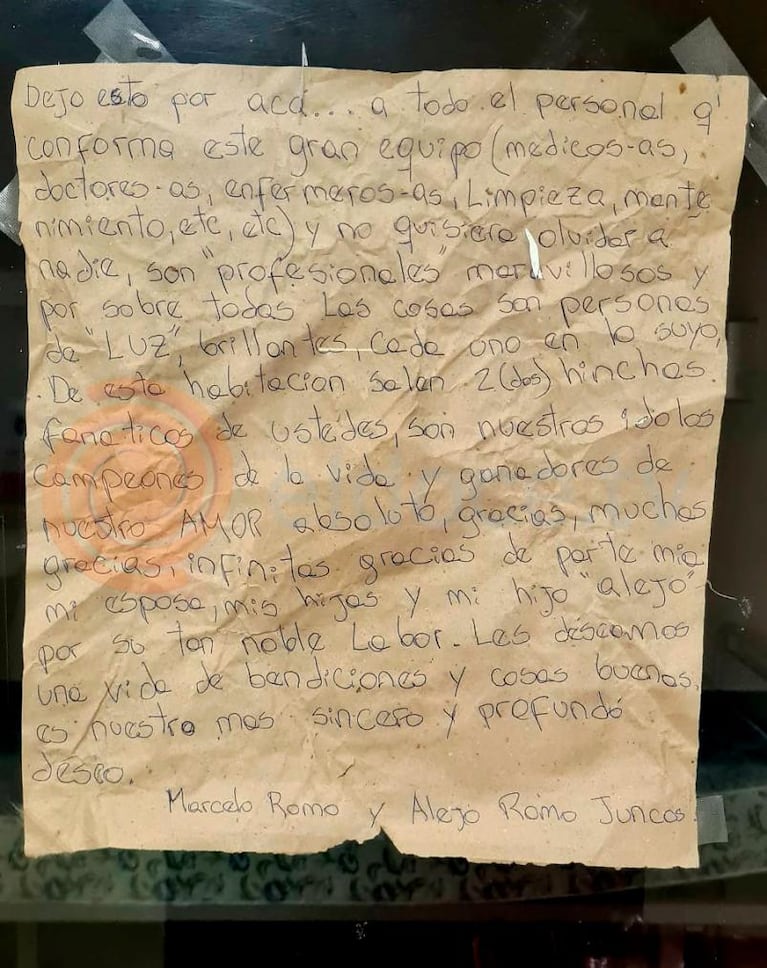 Dejo esto por acá... a todo el personal q'
conforma este gran equipo (medicos-as,
doctores-as, enfermeros-as, Limpieza, mante
nimiento, etc, etc) y no quisiera olvidar a
nadie, son "profesionales" maravillosos y
por sobre todas Las cosas son personas
de "LUZ", brillantes, Cada uno en lo suyo,
De esta habitacion salen 2 (dos) hinchas
fanaticos de ustedes, son nuestros idolos
campeones de la vida y ganadores de
nuestro AMOR absoluto, gracias, muchas
gracias, infinitas gracias de parte mia
mi esposa, mis hijas y mi hijo "alejo"
por su tan noble Labor. Les deseamos
una vida de bendiciones y cosas buenas,
es nuestro mas sincero y profundo
deseo.
Marcelo Romo y Alejo Romo Juncos.